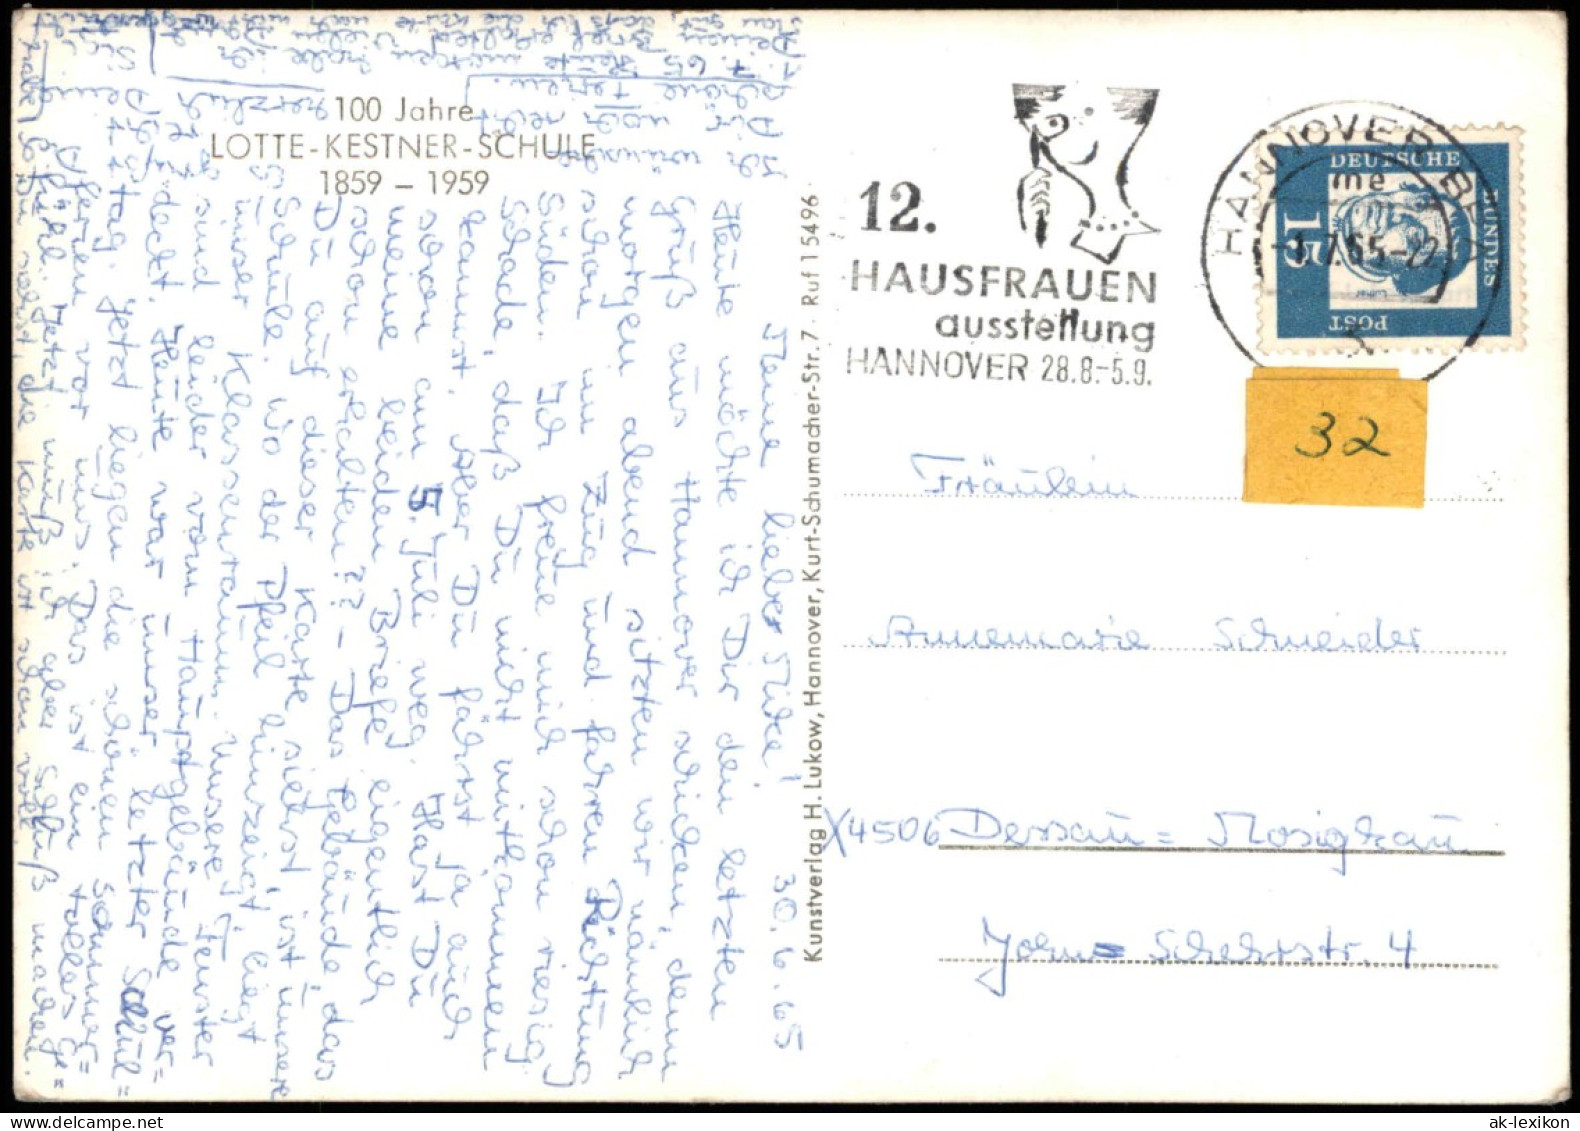 100 Jahre
LOTTE-KESTNER-SCHULE
1859 – 1959
30.6.65
Meine liebe Micke!
Heute möchte ich Dir den letzten
Gruß aus Hannover schicken, denn
morgen abend sitzen wir nämlich
schon im Zug und fahren Richtung
Süden. Ich freue mich schon riesig
Schade, daß Du nicht mitkommen
kannst. Aber Du fährst ja auch
schon am 5. Juli weg. Hast Du
meine beiden Briefe eigentlich
schon erhalten?? – Das Gebäude, das
Du auf dieser Karte siehst, ist unsere
Schule. Wo der Pfeil hinzeigt, liegt
unser Klassenraum. Unsere Fenster
sind leider vom Hauptgebäude ver=
deckt. Heute war unser letzter Schul=
tag. Jetzt liegen die schönen Sommer=
ferien vor uns. Das ist ein tolles Ge=
fühl. Jetzt muß ich aber Schluß machen.
Du siehst, die Karte ist schon voll.
herzlich
Ich wünsche
Dir noch recht
schöne Ferien.
1.7.65 Heute morgen habe ich
Deinen Brief erhalten
Kunstverlag H. Lukow, Hannover, Kurt-Schumacher-Str. 7 · Ruf 1 54 96
12.
HAUSFRAUEN
ausstellung
HANNOVER 28.8.-5.9.
HANNOVER BPA
me
-1.7.65-22
DEUTSCHE
BUNDES
POST
15
32
Fräulein
Annemarie Schneider
X4506 Dessau = Mosigkau
John = Schehrstr. 4
ak-lexikon